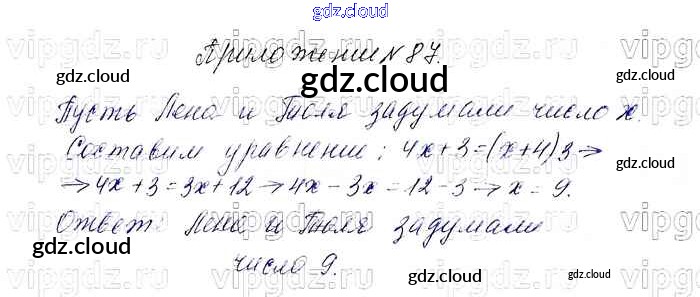 gdz.cloud
Приложение N 87.
gdz.cloud
gdz.cloud
gdz.cloud
Пусть Лена и Толя задумали число x.
Составим уравнение: 4x+3=(x+4)3→
→4x+3=3x+12→4x-3x=12-3→x=9.
Ответ: Лена и Толя задумали
число 9.
gdz.cloud
gdz.cloud
gdz.cloud
gdz.cloud